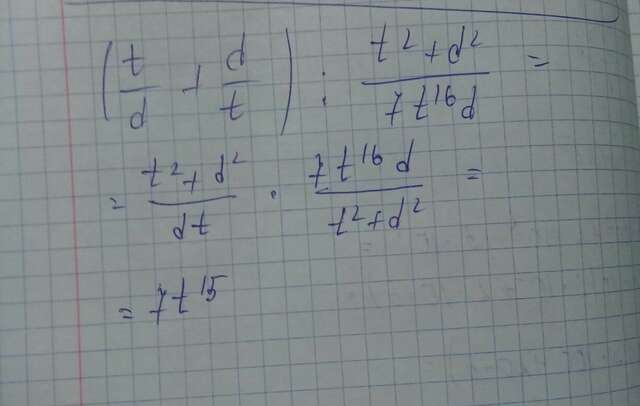 (t/d + d/t) : (t² + d²)/(7t¹⁶d) =
= (t² + d²)/(dt) · (7t¹⁶d)/(t² + d²) =
= 7t¹⁵